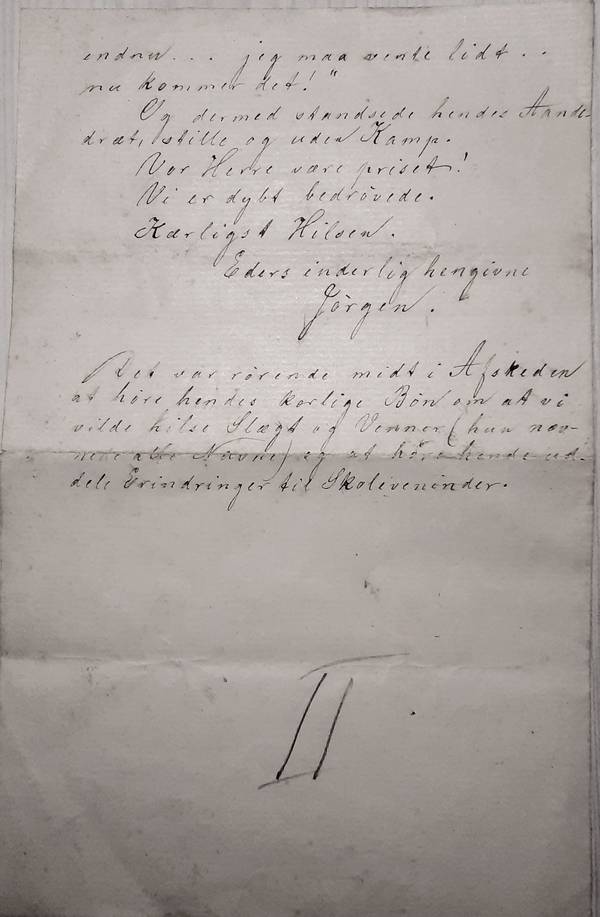 endnu... jeg maa vente lidt..
nu kommer det!"
Og dermed standsede hendes Aande-
dræt, stille og uden Kamp.
Vor Herre være priset!
Vi er dybt bedrøvede.
Kærligst Hilsen.
Eders inderlig hengivne
Jörgen.
Det var rörende midt i Afskeden
at höre hendes kærlige Bön om at vi
vilde hilse Slægt og Venner (hun næv-
nede alle Navne) og at höre hende ud-
dele Erindringer til Skoleveninder.
II